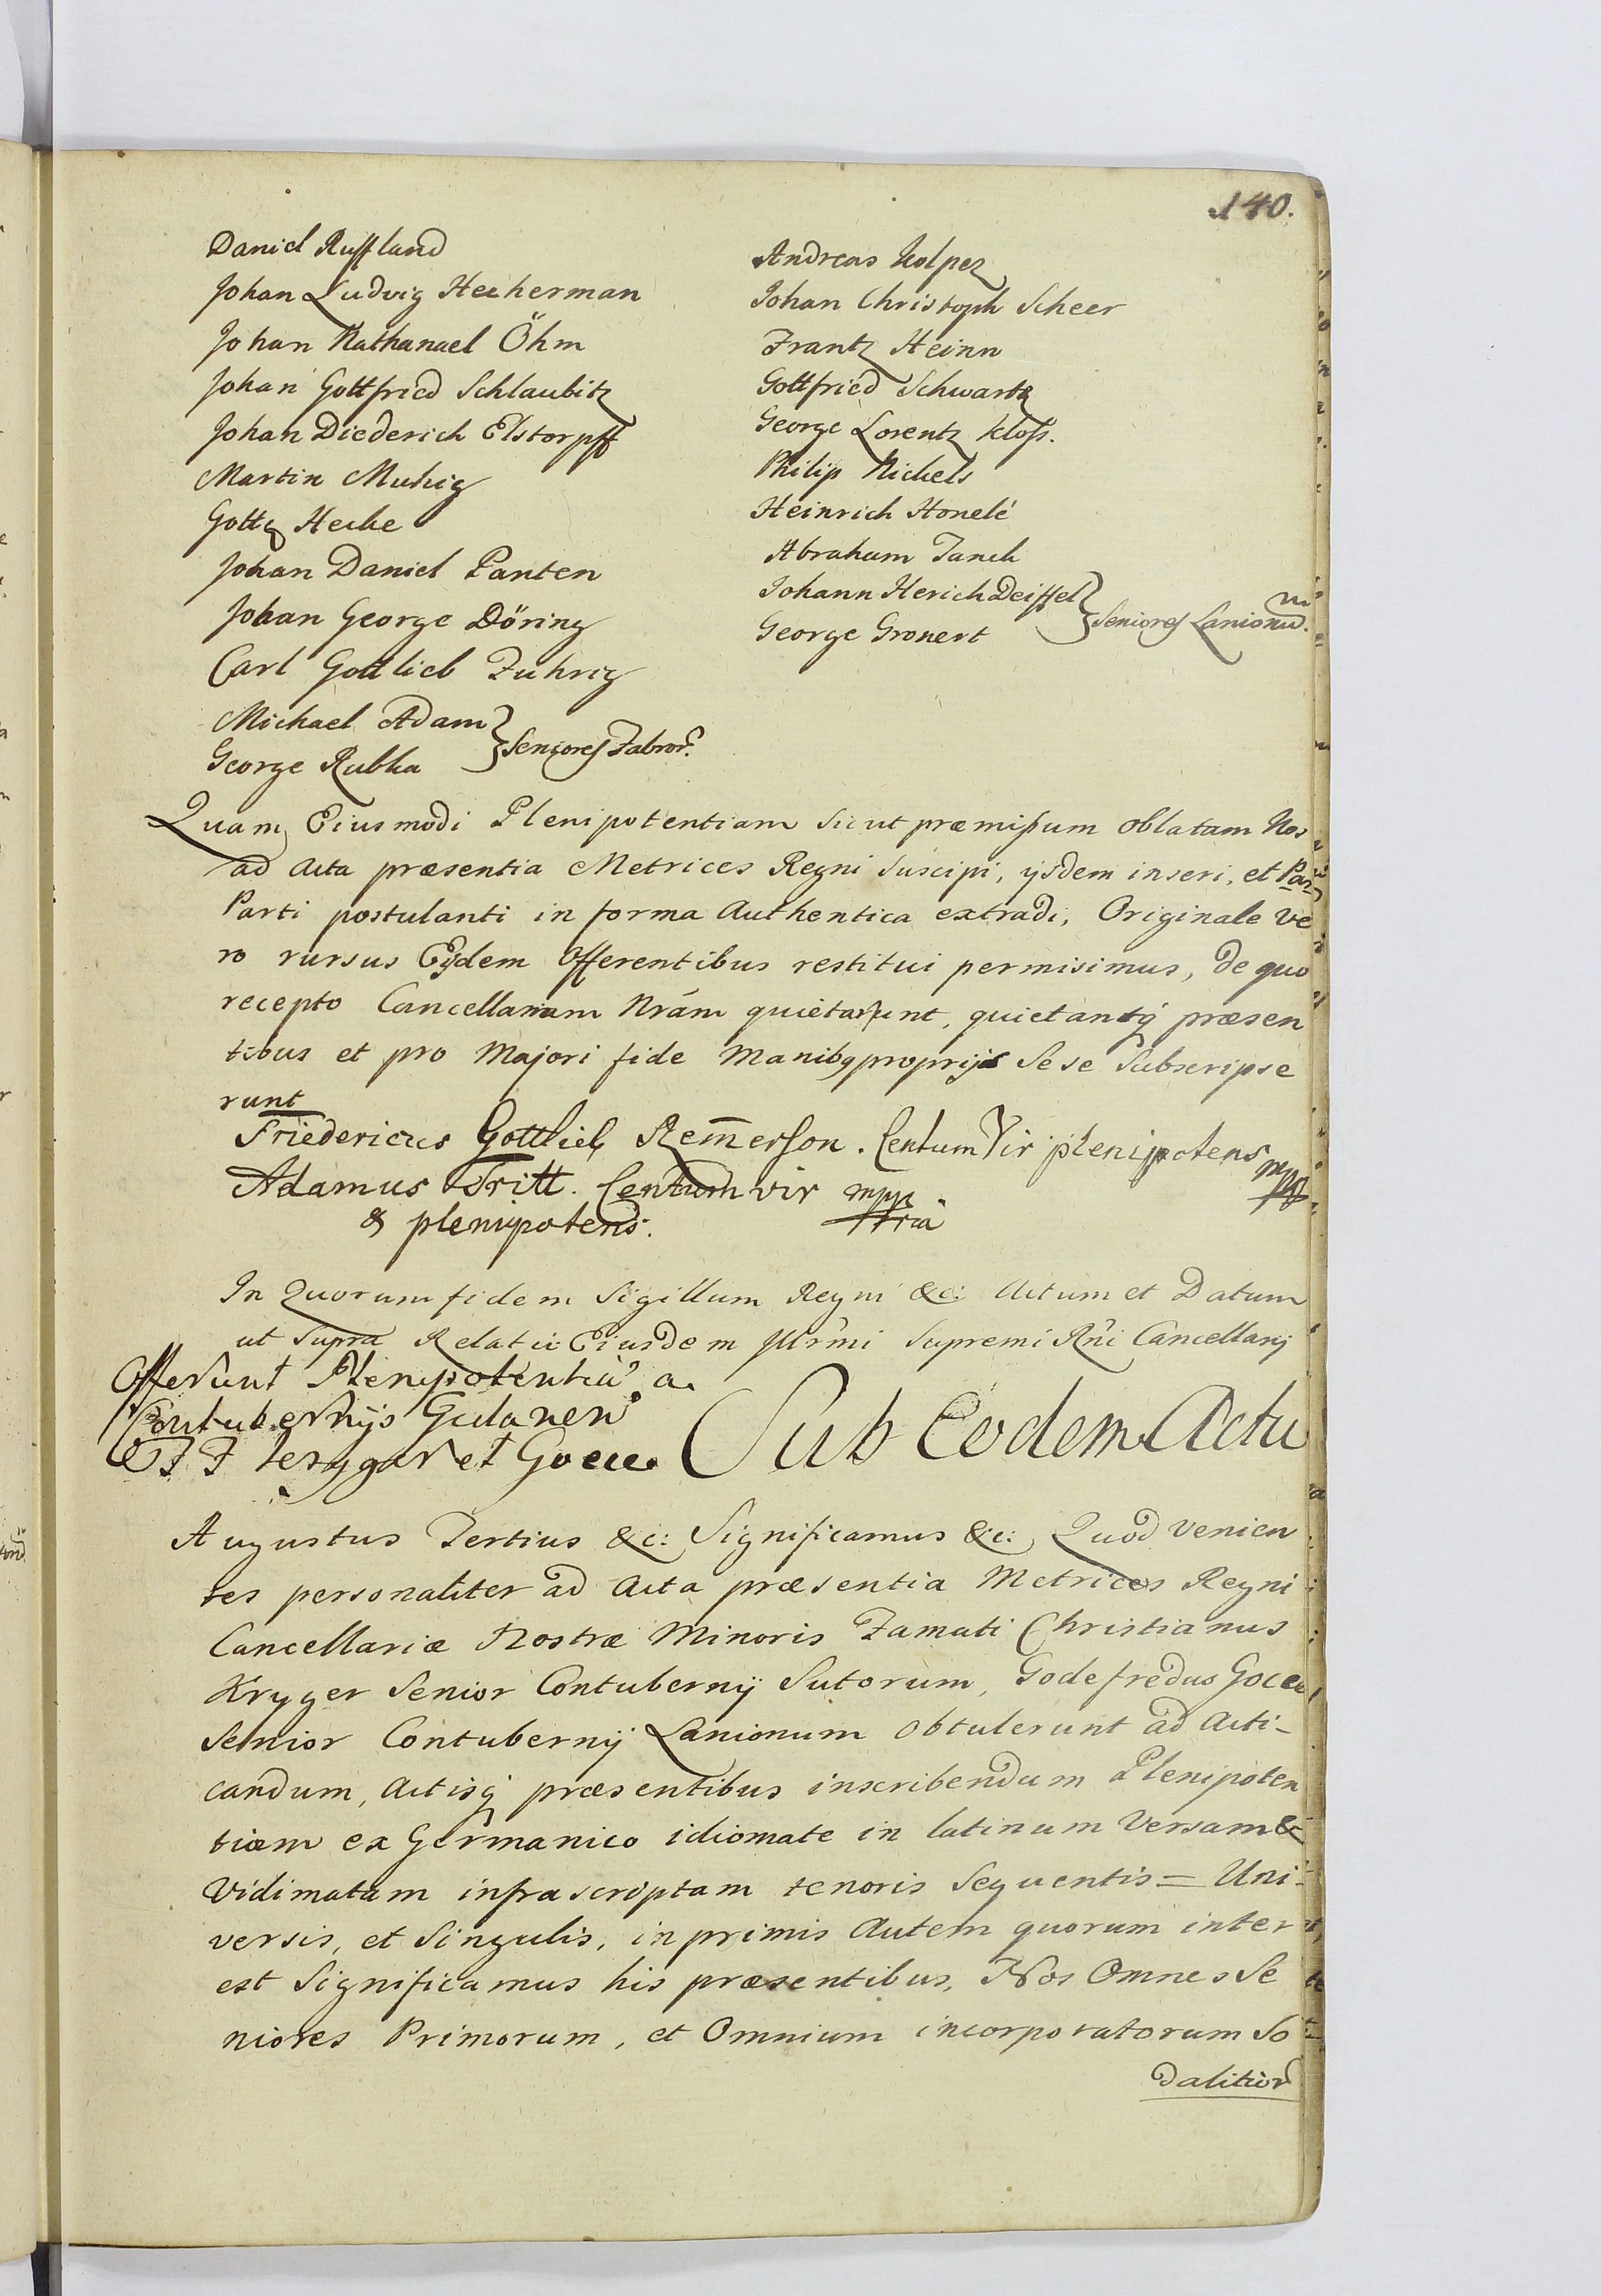 140.
Daniel Ruffland
Johan Ludvig Heckerman
Johan Nathanael Öhm
Johan Gottfried Schlaubitz
Johan Diederich Elstorpff
Martin Muhig
Hecke
Johan Daniel Panten
Johan George Döring
Carl Gottlieb Fuhrig
Michael Adam
George Rubka
Seniores Fabror.
Andreas Kolpez
Johan Christoph Scheer
Frantz Heinn
Gottfried Schwartz
George Lorentz Kloß.
Philip Nickels
Heinrich Honelé
Abraham Janck
Johann Herich Deiffel
George Gronert
Seniores Lanionu.
Quam Eiusmodi Plenipotentiam sicut præmißum oblatam Nos
ad Acta præsentia Metrices Regni suscipi, ijsdem inseri, et Par
Parti postulanti in forma Authentica extradi, Originale ve
ro rursus Eijdem Offerentibus restitui permisimus, de quo
recepto Cancellariam Nrám quietarunt, quietantq́ præsen
tibus et pro Majori fide Manibq proprijs Sese Subscripse
runt
Friedericus Gottlieb Rem̄erson. CentumVir plenipotens mpp
Adamus Tritt. Centumvir mpp
& plenipotens. ria
In Quorum fidem Sigillum Regni &c: Actum et Datum
ut Supra Relatio Eiusdem Illr̃mi Supremi Rñi Cancellarij
Offerunt Plenipotentiã a
Contubernijs Gedanen
FF et Goece
Sub Eodem Actu
Augustus Tertius &c: Significamus &c: Quod venien
tes personaliter ad Acta præsentia Metrices Regni
Cancellariæ Nostræ Minoris Famati Christianus
Kryger Senior Contubernij Sutorum, Godefredus Goece
Senior Contubernij Lanionum obtulerunt ad Acti-
candum, Actisq́ præsentibus inscribendum Plenipoten
tiam ex Germanico idiomate in latinum Versam &
Vidimatam infrascriptam tenoris Sequentis = Uni-
versis, et Singulis, inprimis Autem quorum inter
est Significamus his præsentibus, Nos Omnes Se
niores Primorum, et Omnium incorporatorum So
dalitior